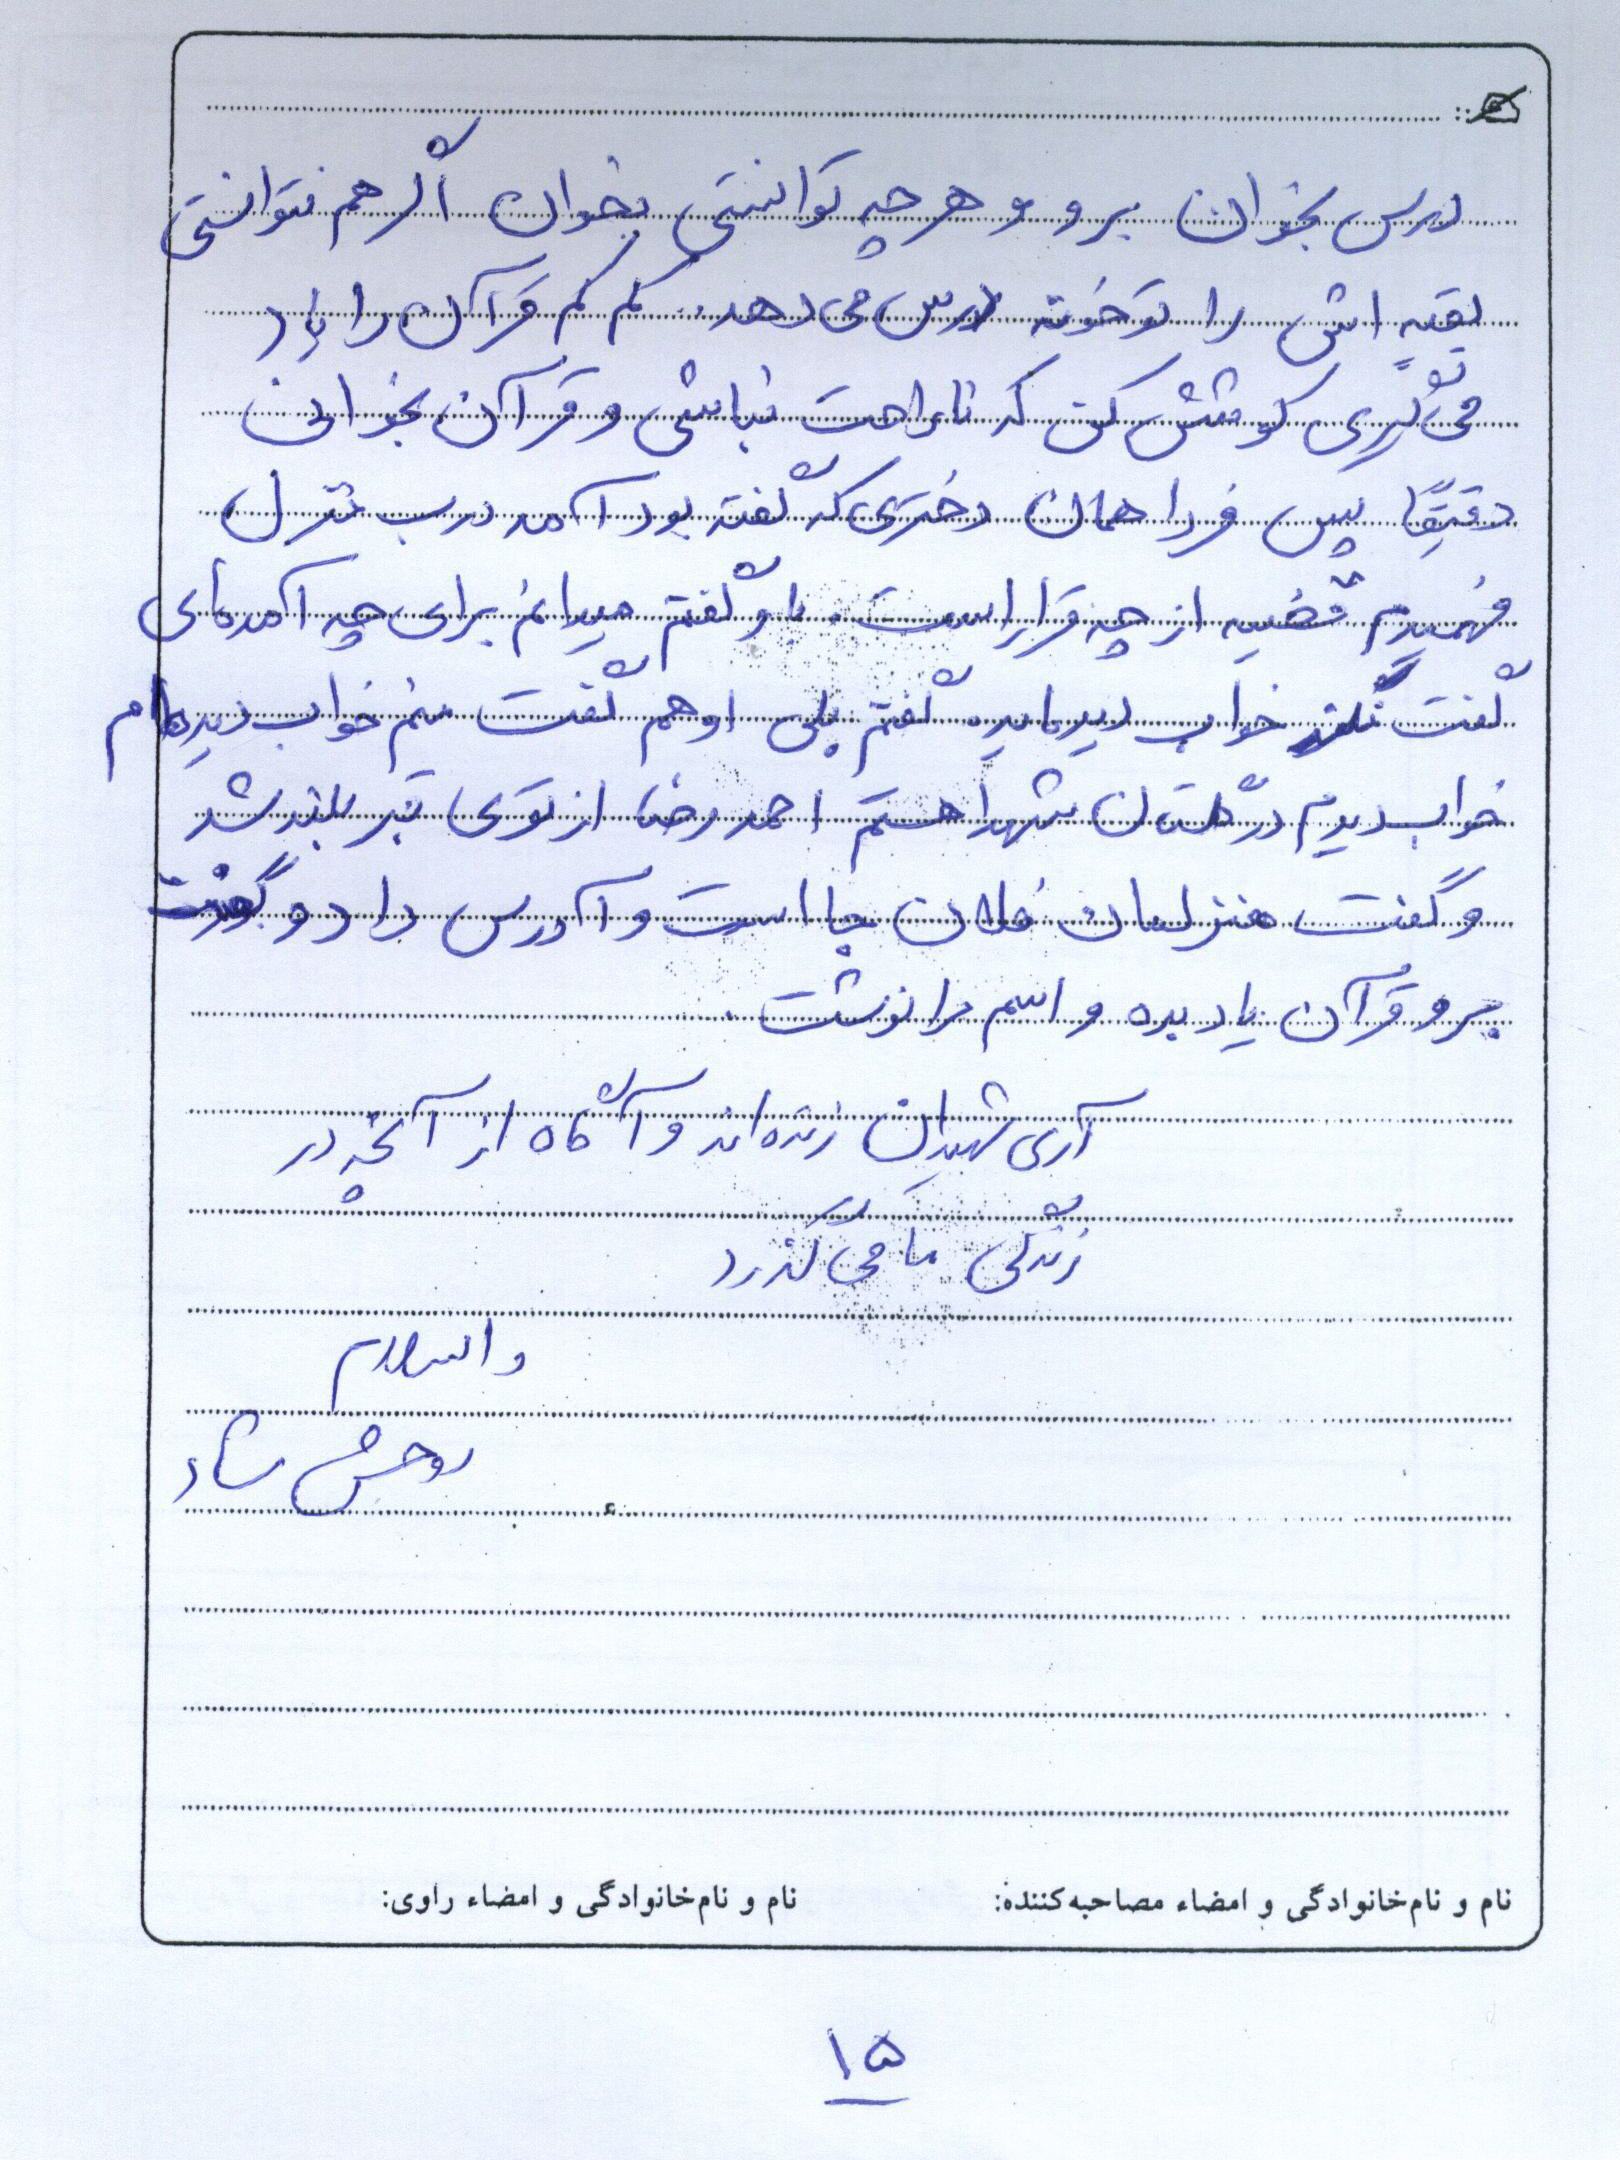 درس بخوان برو و هر چه توانستی بخوان اگر هم نتوانستی
بقیه اش را تو خونه درس می دهد.. کم کم قرآن را یاد
می گیری تو کوشش کن که ناراحت نباشی و قرآن بخوانی
دقیقاً پس فردا همان دختری که گفته بود آمد درب منزل
فهمیدم قضیه از چه قرار است. باو گفتم میدانم برای چه آمده‌ای
گفت خواب دیده‌اید. گفتم بلی او هم گفت منم خواب دیده‌ام
خواب دیدم در گلستان شهدا هستم احمد رضا از توی قبر بلند شد
و گفت منزلمان فلان جا است و آدرس داد و گفت
برو قرآن یاد بده و اسم مرا نوشت.
آری شهیدان زنده‌اند و آگاه از آنچه در
زندگی ما می گذرد
والسلام
روحش شاد
نام و نام‌خانوادگی و امضاء مصاحبه‌کننده: نام و نام‌خانوادگی و امضاء راوی:
۱۵